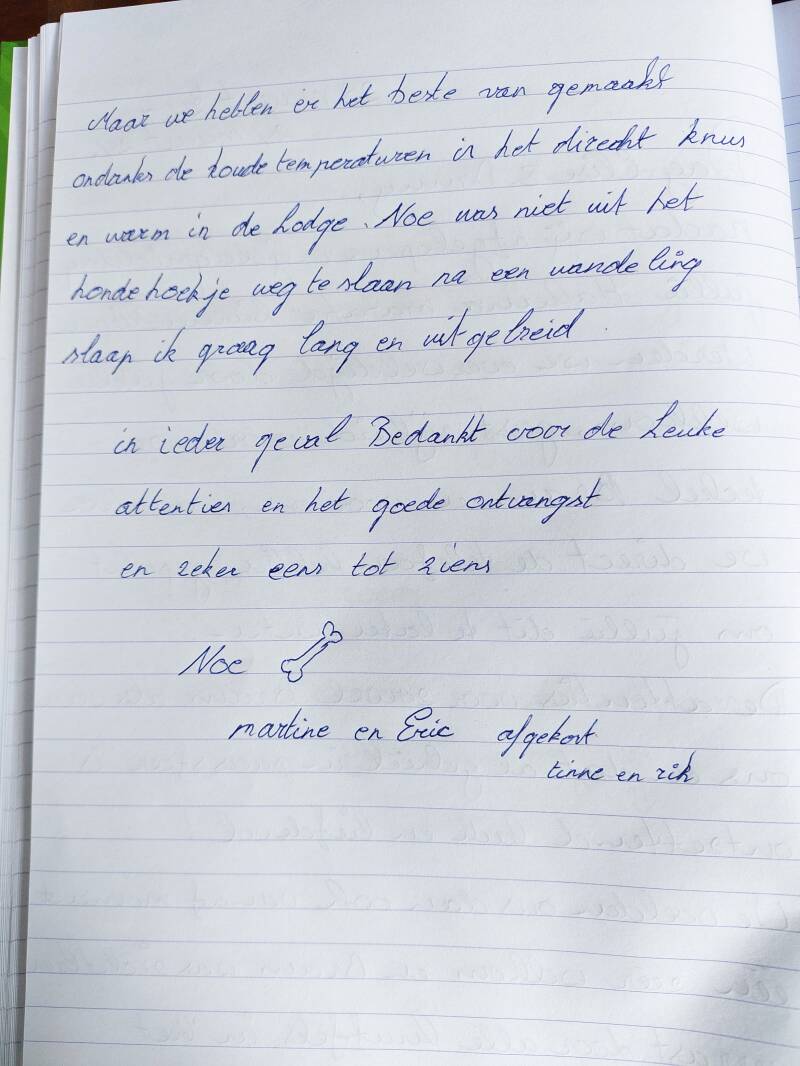 Maar we hebben er het beste van gemaakt
ondanks de koude temperaturen is het direcht knus
en warm in de Lodge. Noe was niet uit het
hondehoekje weg te slaan na een wandeling
slaap ik graag lang en uitgebreid.
in ieder geval Bedankt voor de Leuke
attenties en het goede ontvangst
en zeker eens tot ziens
Noe
martine en Eric afgekort
tinne en rik